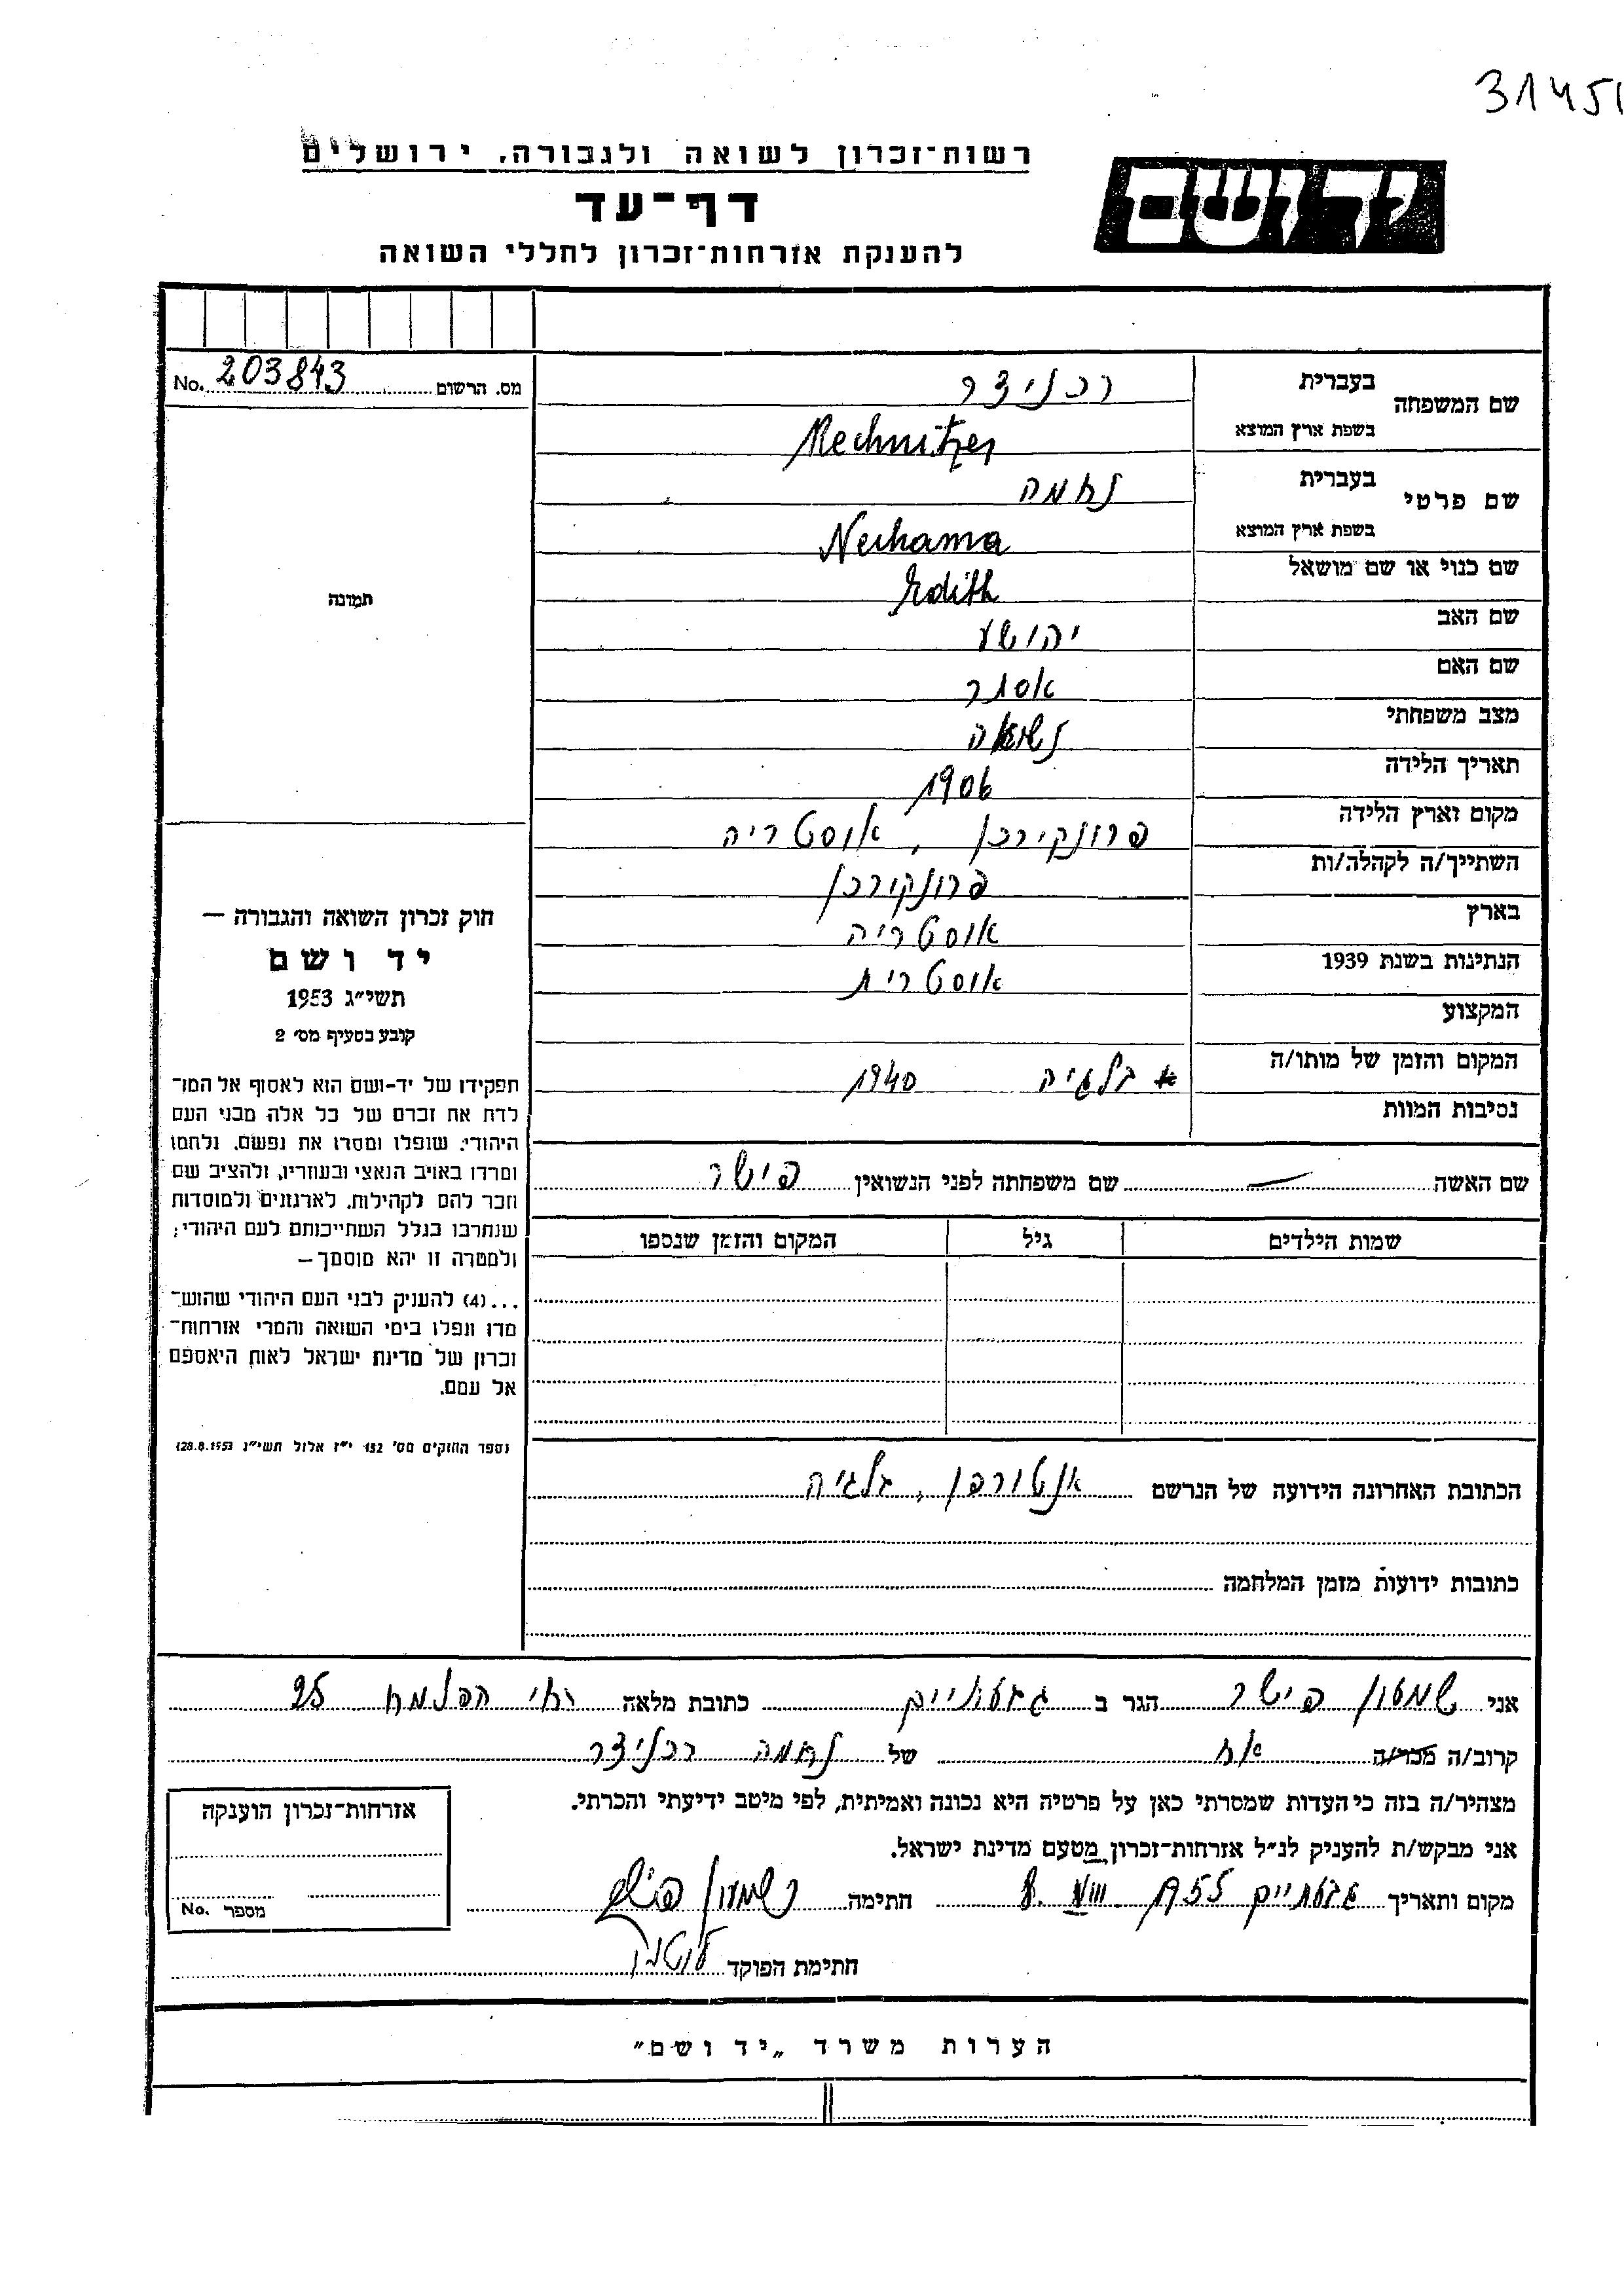 31451
רשות־זכרון לשואה ולגבורה, ירושלים
יד ושם
דף־עד
להענקת אזרחות־זכרון לחללי השואה
מס. הרשום 203843 No.
שם המשפחה
בעברית רכניצר
בשפת ארץ המוצא Rechnitzer
שם פרטי
בעברית נחמה
בשפת ארץ המוצא Nechama
שם כנוי או שם מושאל Edith
שם האב יהושע
שם האם אסתר
מצב משפחתי נשואה
תאריך הלידה 1906
מקום וארץ הלידה פרונקירכן, אוסטריה
השתייך/ה לקהלה/ות פרונקירכן
בארץ אוסטריה
הנתינות בשנת 1939 אוסטרית
המקצוע
המקום והזמן של מותו/ה בלגיה 1940
נסיבות המוות
תמונה
חוק זכרון השואה והגבורה —
יד ושם
תשי״ג 1953
קובע בסעיף מס׳ 2
תפקידו של יד-ושם הוא לאסוף אל המו־
לדת את זכרם של כל אלה מבני העם
היהודי, שנפלו ומסרו את נפשם, נלחמו
ומרדו באויב הנאצי ובעוזריו, ולהציב שם
וזכר להם לקהילות, לארגונים ולמוסדות
שנחרבו בגלל השתייכותם לעם היהודי;
ולמטרה זו יהא מוסמך —
...(4) להעניק לבני העם היהודי שהוש־
מדו ונפלו בימי השואה והמרי אזרחות־
זכרון של מדינת ישראל לאות היאספם
אל עמם.
(ספר החוקים מס׳ 132 י״ז אלול תשי״ג 28.8.1953)
שם האשה — שם משפחתה לפני הנשואין פישר
שמות הילדים גיל המקום והזמן שנספו
הכתובת האחרונה הידועה של הנרשם אנטורפן, בלגיה
כתובות ידועות מזמן המלחמה
אני שמעון פישר הגר ב גבעתיים כתובת מלאה רח׳ הפלמח 25
קרוב/ה מכר/ה אח של נחמה רכניצר
מצהיר/ה בזה כי העדות שמסרתי כאן על פרטיה היא נכונה ואמיתית, לפי מיטב ידיעתי והכרתי.
אני מבקש/ת להעניק לנ״ל אזרחות־זכרון מטעם מדינת ישראל.
מקום ותאריך גבעתיים 8. VIII 1955 חתימה שמעון פישר
חתימת הפוקד
אזרחות־זכרון הוענקה
מספר No.
הערות משרד „יד ושם״